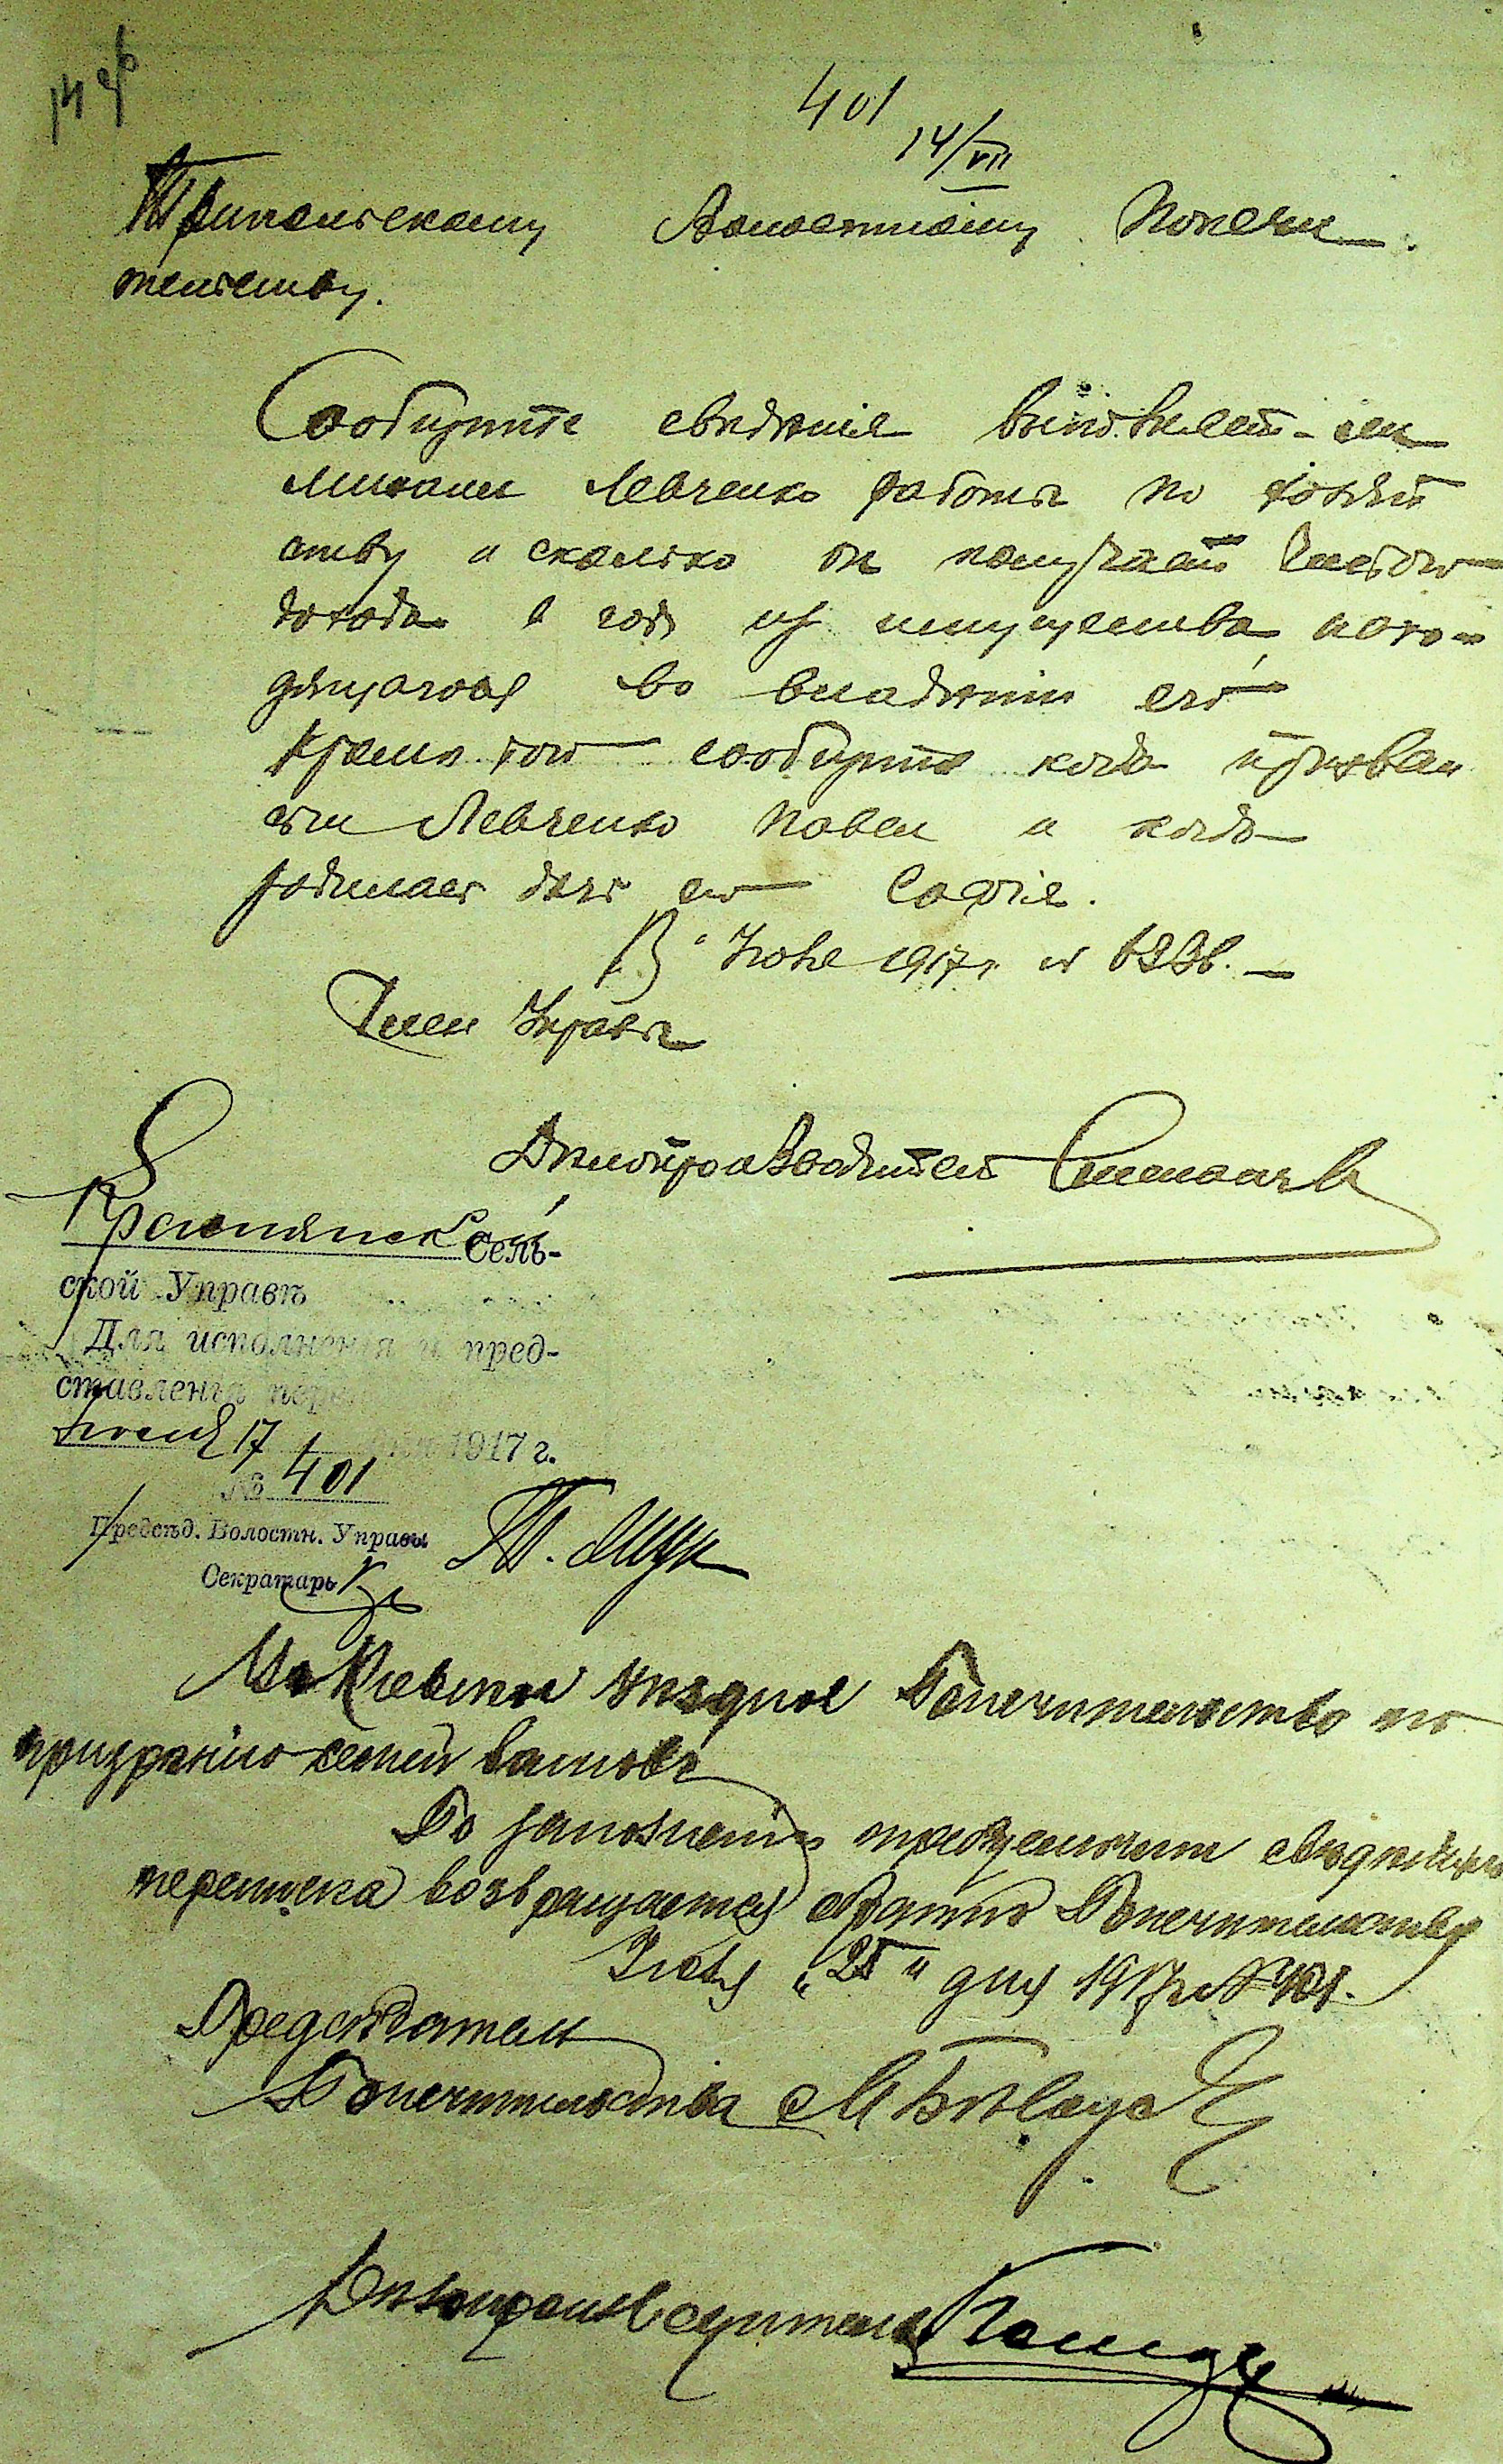 401
14/VII
Трипольскому Волостному Попечи-
тельству.
Сообщите сведѣнія выполняет-ли
Михаил Левченко работы по хозяй
ству и сколько он получает чистого
дохода в год из имущества нахо-
дящагося во владѣнии его
Кроме того сообщите когда призван
сын Левченко Павел и когда
родилась дочь его Софія.
Іюня 1917 г. №
Член Управы
Дѣлопроизводитель
Сель-
ской Управѣ
Для исполненія и пред-
ставленія
Іюля 17 дня 1917 г.
№ 401
Предсѣд. Волостн. Управы
Секретарь
В Киевское Уездное Попечительство по
призрѣнію семей
По заполнении сведѣний
переписка возвращается обратно Попечительству
Іюля дня 1917 г. № 401.
Предсѣдатель
Попечительства М Бѣлоус
Дѣлопроизводитель